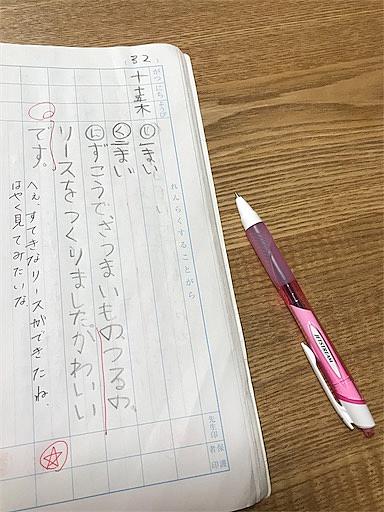 がつにちようび
32
木
れんらくすることがら
し 一まい
く 一まい
に ずこうで、さつまいものつるの、
リースをつくりました。かわいい
です。
へぇ、すてきなリースができたね。
はやく見てみたいな。
先生印
保護者印
JETSTREAM